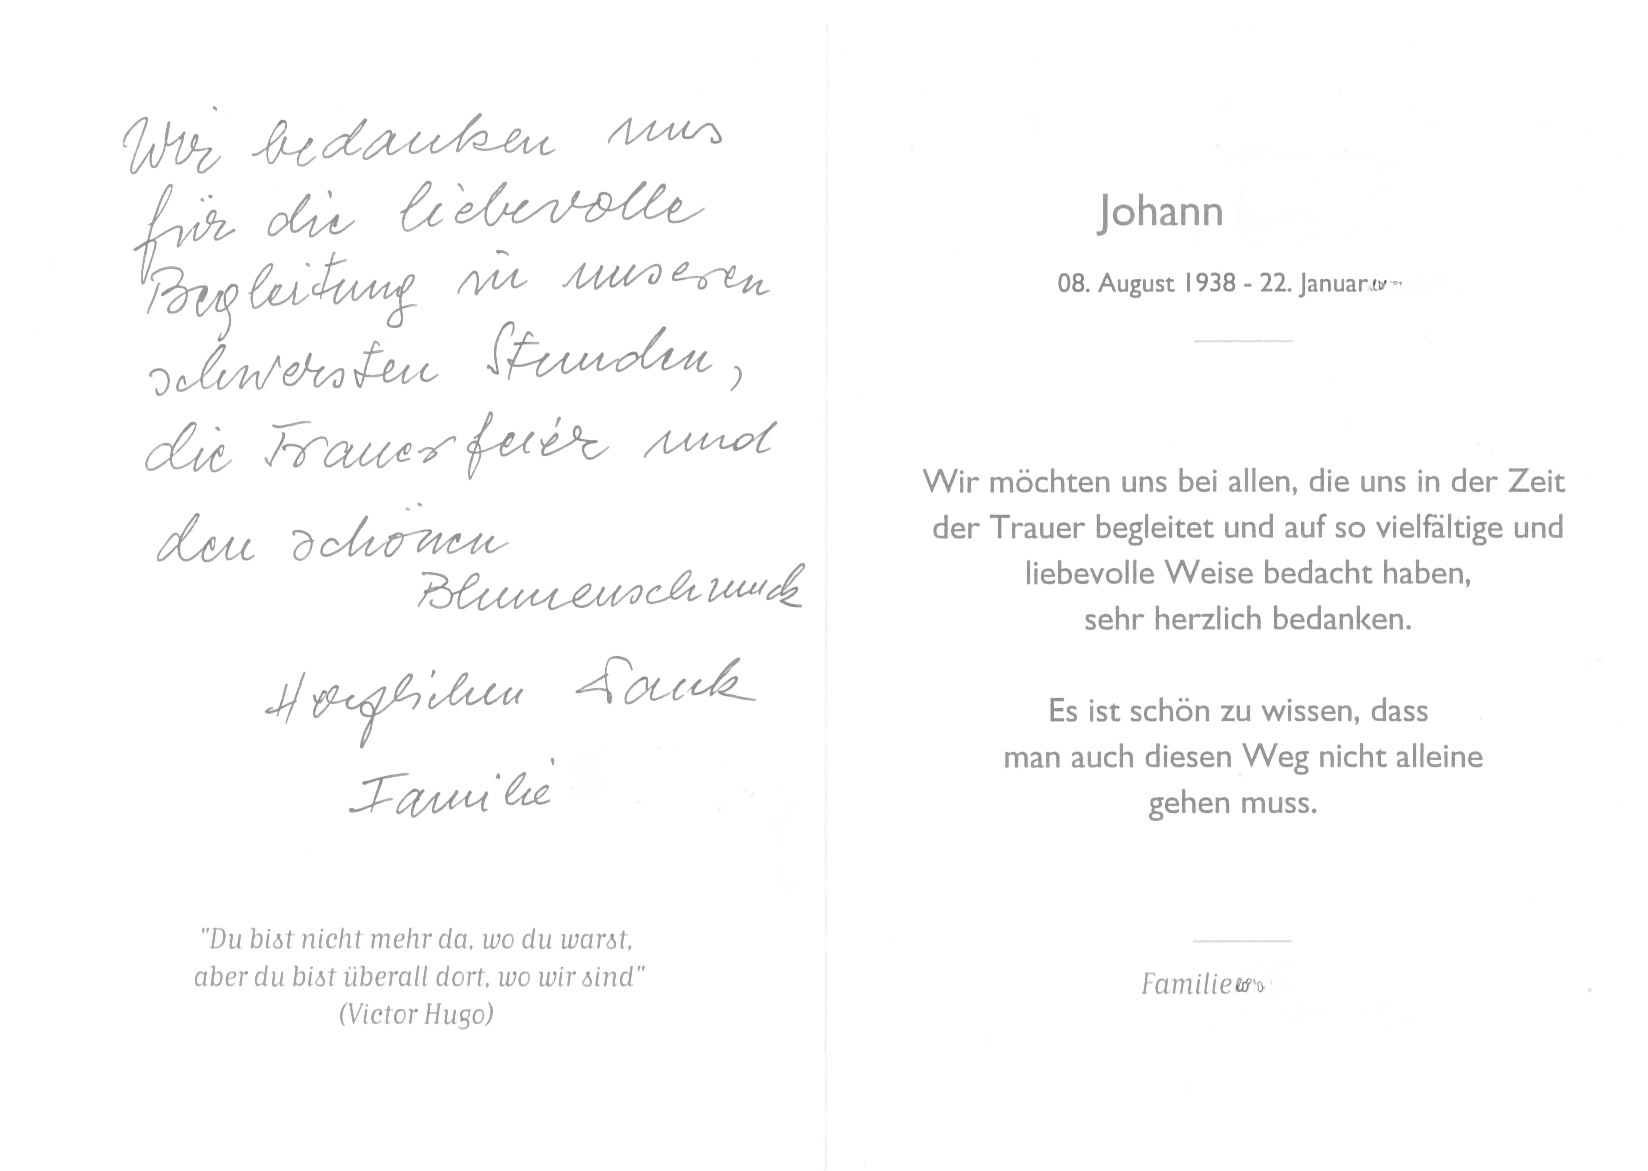 Wir bedanken uns
für die liebevolle
Begleitung in unseren
schwersten Stunden,
die Trauerfeier und
den schönen
Blumenschmuck
Herzlichen Dank
Familie
"Du bist nicht mehr da, wo du warst,
aber du bist überall dort, wo wir sind"
(Victor Hugo)
Johann
08. August 1938 - 22. Januar
Wir möchten uns bei allen, die uns in der Zeit
der Trauer begleitet und auf so vielfältige und
liebevolle Weise bedacht haben,
sehr herzlich bedanken.
Es ist schön zu wissen, dass
man auch diesen Weg nicht alleine
gehen muss.
Familie